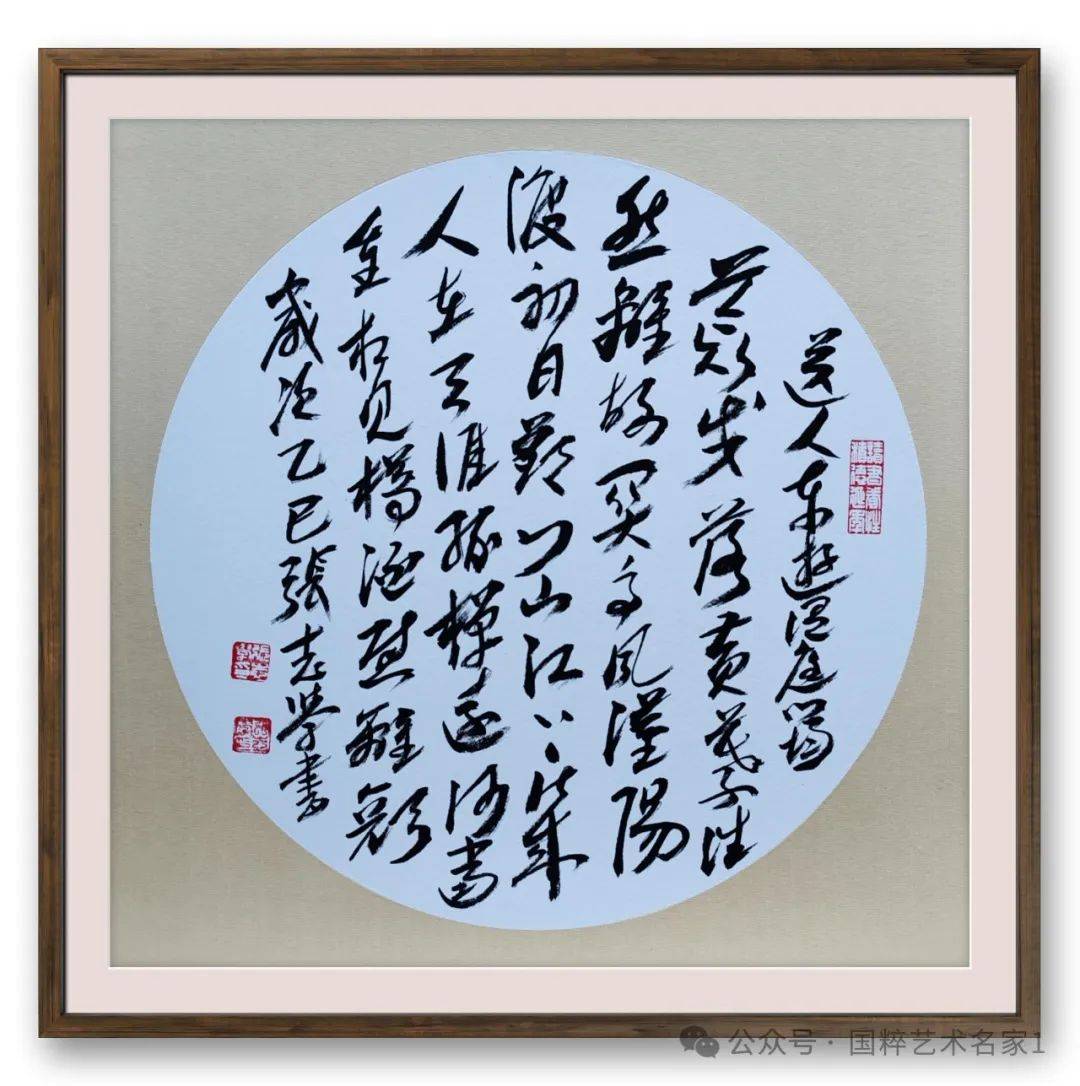 送人東遊溫庭筠
荒戍落黄葉浩
然離故関高風漢陽
渡初日郢门山江上幾
人在天涯孤棹還何當
重相見樽酒慰離顔
歲次乙巳張志學書
公众号·国粹艺术名家1